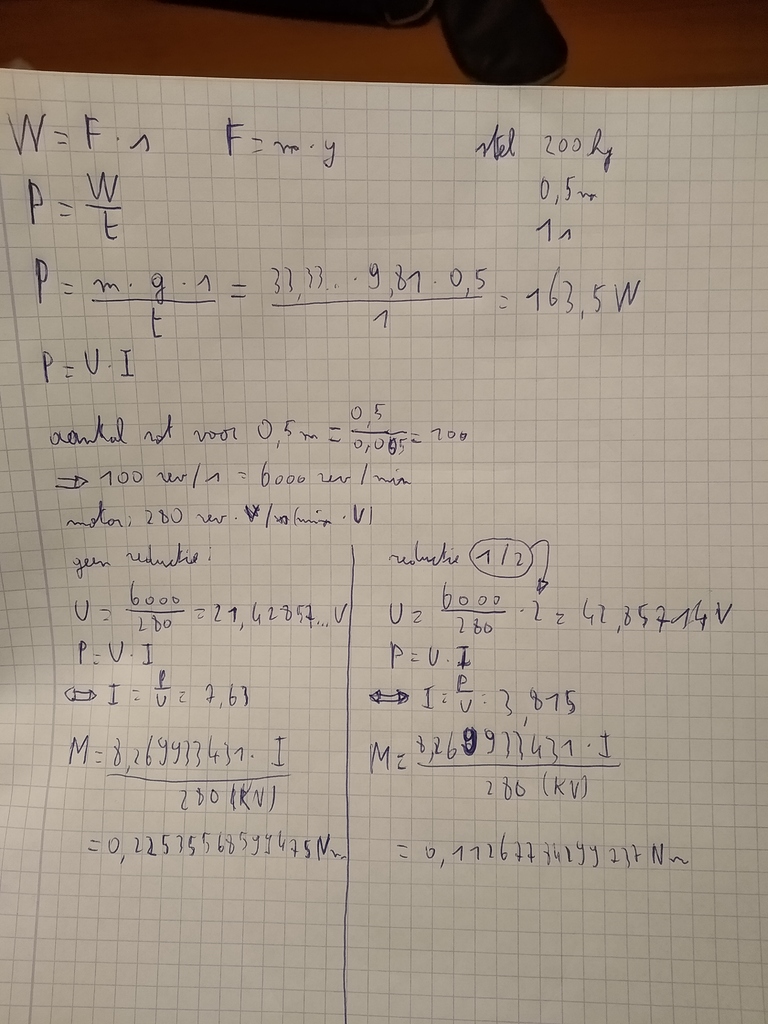 W = F · s F = m · g stel 200 kg
P = W/t 0,5m
1s
P = m · g · s / t = 33,33... · 9,81 · 0,5 / 1 = 163,5 W
P = U · I
aantal rot voor 0,5m = 0,5 / 0,005 = 100
⇒ 100 rev/s = 6000 rev/min
motor: 280 rev
geen reductie:
U = 6000/280 = 21,42857...V
P = U · I
⇔ I = P/U = 7,63
M = 8,269933431 · I / 280 (KV)
= 0,22535568599475 Nm
reductie 1/2
U = 6000/280 · 2 = 42,85714 V
P = U · I
⇔ I = P/U = 3,815
M = 8,269933431 · I / 280 (KV)
= 0,11267784299237 Nm